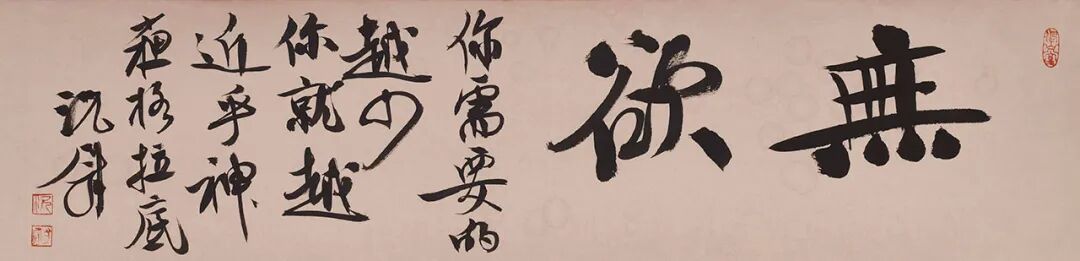 無欲
你需要的
越少
你就越
近乎神
蘇格拉底
沈舒